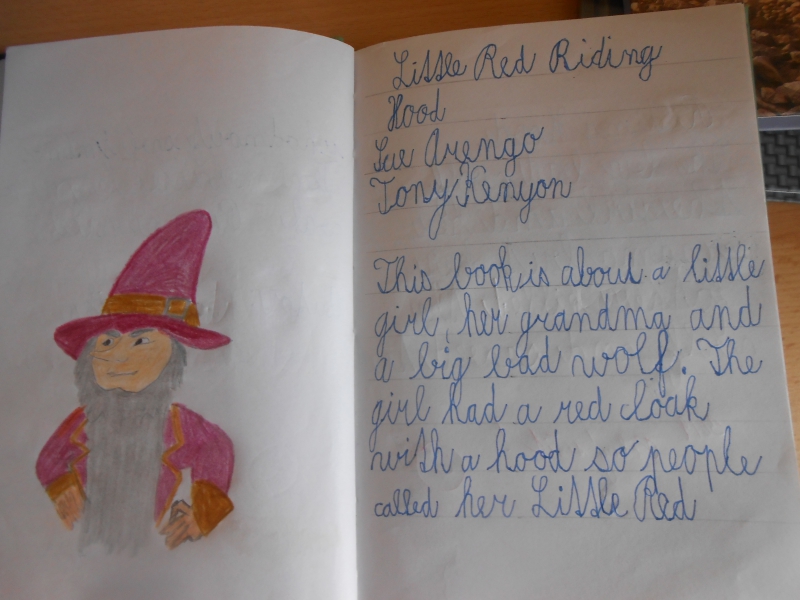 Little Red Riding
Hood
Sue Arengo
Tony Kenyon
This book is about a little
girl, her grandma and
a big bad wolf. The
girl had a red cloak
with a hood so people
called her Little Red